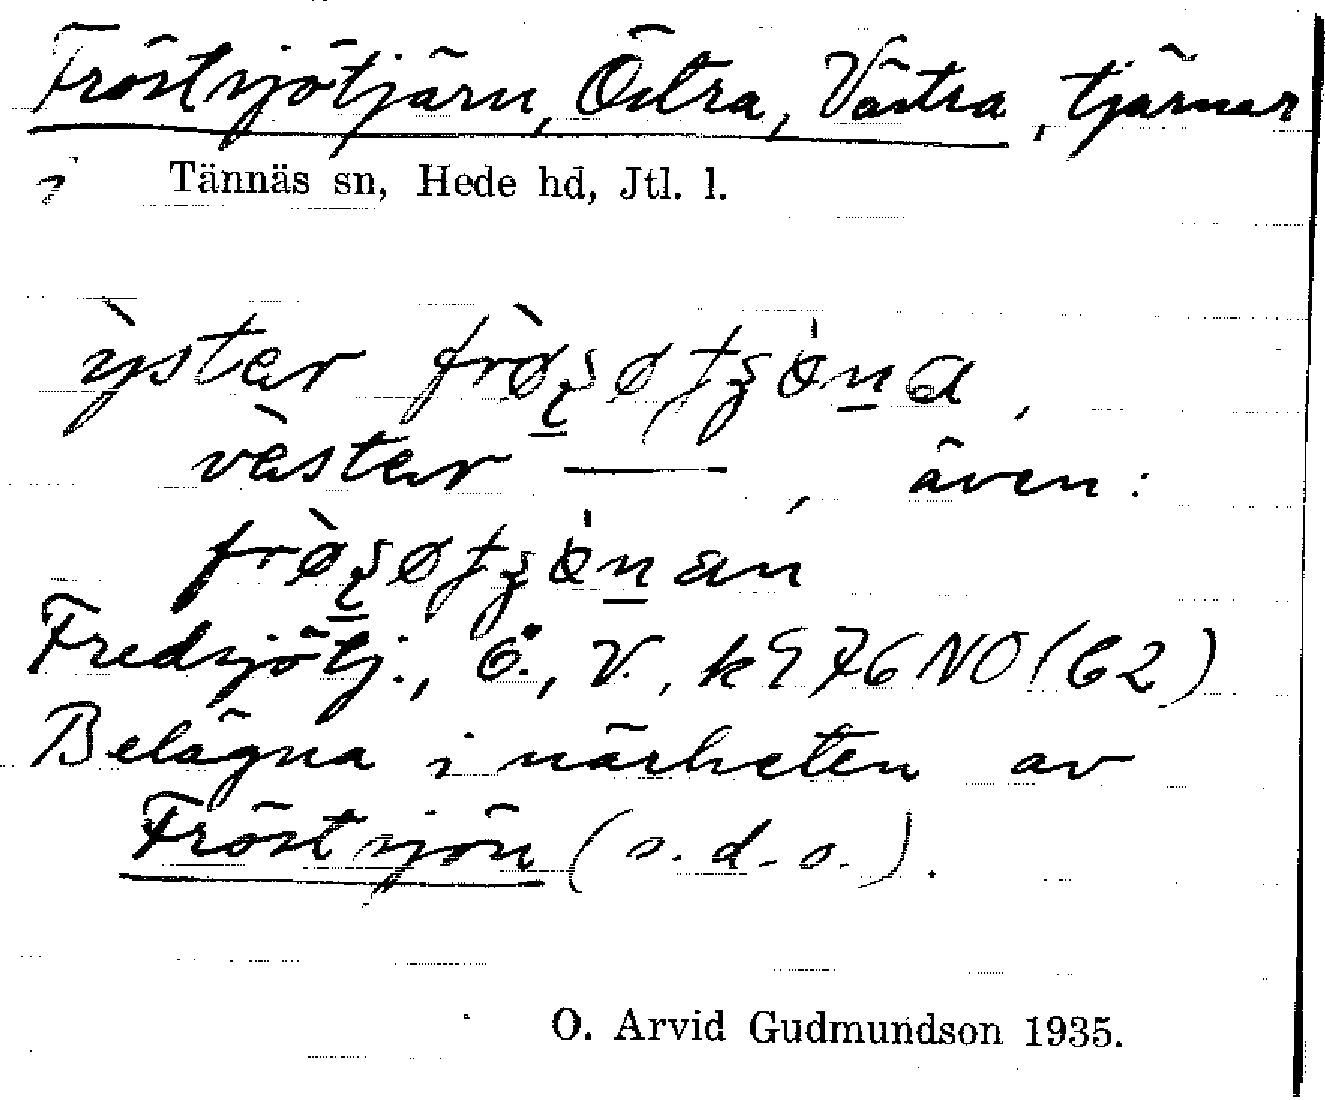 Fröstsjötjärn, Östra, Västra, tjärnar
i Tännäs sn, Hede hd, Jtl. l.
väster ——, även:
Fredsjötj., Ö., V., k 976 NO (62)
Belägna i närheten av
Fröstsjön (s. d. o.).
O. Arvid Gudmundson 1935.